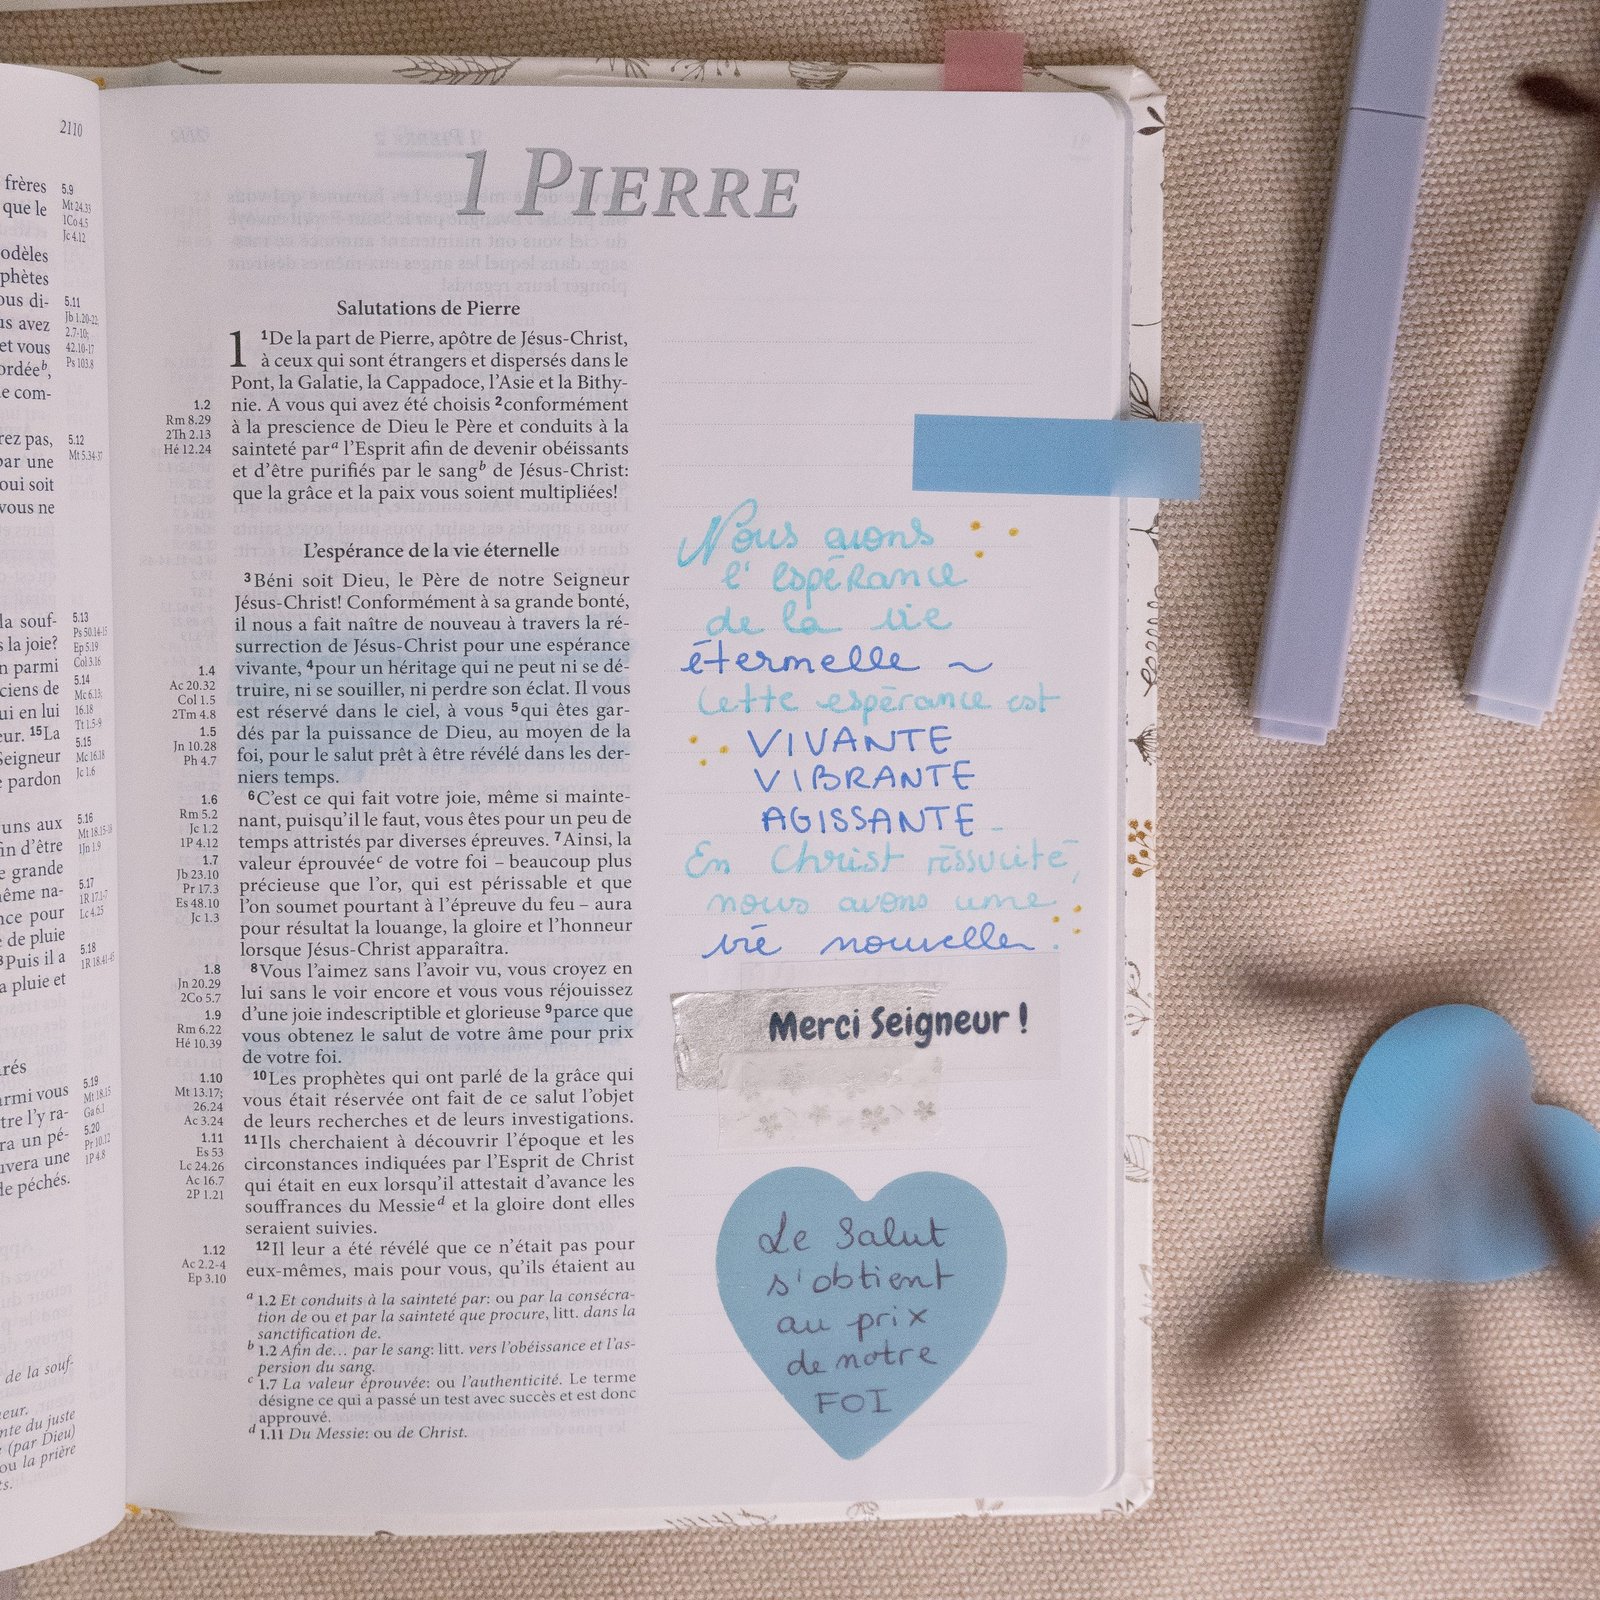 2110
frères
que le
odèles
phètes
ous di-
us avez
et vous
ordéeᵇ,
e com-
rez pas,
par une
oui soit
vous ne
la souf-
s la joie?
n parmi
ciens de
ui en lui
eur. ¹⁵La
Seigneur
e pardon
uns aux
fin d'être
e grande
ême na-
nce pour
e de pluie
Puis il a
a pluie et
rés
armi vous
tre l'y ra-
ra un pé-
uvera une
de péchés.
de la souf-
eur.
nte du juste
(par Dieu)
ou la prière
ts.
5.9
Mt 24.33
1Co 4.5
Jc 4.12
5.11
Jb 1.20-22;
2.7-10;
42.10-17
Ps 103.8
5.12
Mt 5.34-37
5.13
Ps 50.14-15
Ep 5.19
Col 3.16
5.14
Mc 6.13;
16.18
Tt 1.5-9
5.15
Mc 16.18
Jc 1.6
5.16
Mt 18.15-18
1Jn 1.9
5.17
1R 17.1-7
Lc 4.25
5.18
1R 18.41-45
5.19
Mt 18.15
Ga 6.1
5.20
Pr 10.12
1P 4.8
1 PIERRE
Salutations de Pierre
1 ¹De la part de Pierre, apôtre de Jésus-Christ,
à ceux qui sont étrangers et dispersés dans le
Pont, la Galatie, la Cappadoce, l'Asie et la Bithy-
nie. A vous qui avez été choisis ²conformément
à la prescience de Dieu le Père et conduits à la
sainteté parᵃ l'Esprit afin de devenir obéissants
et d'être purifiés par le sangᵇ de Jésus-Christ:
que la grâce et la paix vous soient multipliées!
L'espérance de la vie éternelle
³Béni soit Dieu, le Père de notre Seigneur
Jésus-Christ! Conformément à sa grande bonté,
il nous a fait naître de nouveau à travers la ré-
surrection de Jésus-Christ pour une espérance
vivante, ⁴pour un héritage qui ne peut ni se dé-
truire, ni se souiller, ni perdre son éclat. Il vous
est réservé dans le ciel, à vous ⁵qui êtes gar-
dés par la puissance de Dieu, au moyen de la
foi, pour le salut prêt à être révélé dans les der-
niers temps.
⁶C'est ce qui fait votre joie, même si mainte-
nant, puisqu'il le faut, vous êtes pour un peu de
temps attristés par diverses épreuves. ⁷Ainsi, la
valeur éprouvéeᶜ de votre foi – beaucoup plus
précieuse que l'or, qui est périssable et que
l'on soumet pourtant à l'épreuve du feu – aura
pour résultat la louange, la gloire et l'honneur
lorsque Jésus-Christ apparaîtra.
⁸Vous l'aimez sans l'avoir vu, vous croyez en
lui sans le voir encore et vous vous réjouissez
d'une joie indescriptible et glorieuse ⁹parce que
vous obtenez le salut de votre âme pour prix
de votre foi.
¹⁰Les prophètes qui ont parlé de la grâce qui
vous était réservée ont fait de ce salut l'objet
de leurs recherches et de leurs investigations.
¹¹Ils cherchaient à découvrir l'époque et les
circonstances indiquées par l'Esprit de Christ
qui était en eux lorsqu'il attestait d'avance les
souffrances du Messieᵈ et la gloire dont elles
seraient suivies.
¹²Il leur a été révélé que ce n'était pas pour
eux-mêmes, mais pour vous, qu'ils étaient au
1.2
Rm 8.29
2Th 2.13
Hé 12.24
1.4
Ac 20.32
Col 1.5
2Tm 4.8
1.5
Jn 10.28
Ph 4.7
1.6
Rm 5.2
Jc 1.2
1P 4.12
1.7
Jb 23.10
Pr 17.3
Es 48.10
Jc 1.3
1.8
Jn 20.29
2Co 5.7
1.9
Rm 6.22
Hé 10.39
1.10
Mt 13.17;
26.24
Ac 3.24
1.11
Es 53
Lc 24.26
Ac 16.7
2P 1.21
1.12
Ac 2.2-4
Ep 3.10
ᵃ 1.2 Et conduits à la sainteté par: ou par la consécra-
tion de ou et par la sainteté que procure, litt. dans la
sanctification de.
ᵇ 1.2 Afin de… par le sang: litt. vers l'obéissance et l'as-
persion du sang.
ᶜ 1.7 La valeur éprouvée: ou l'authenticité. Le terme
désigne ce qui a passé un test avec succès et est donc
approuvé.
ᵈ 1.11 Du Messie: ou de Christ.
Nous avons
l'espérance
de la vie
éternelle ~
Cette espérance est
VIVANTE
VIBRANTE
AGISSANTE
En Christ réssucité,
nous avons une
vie nouvelle.
Merci Seigneur !
Le Salut
s'obtient
au prix
de notre
FOI